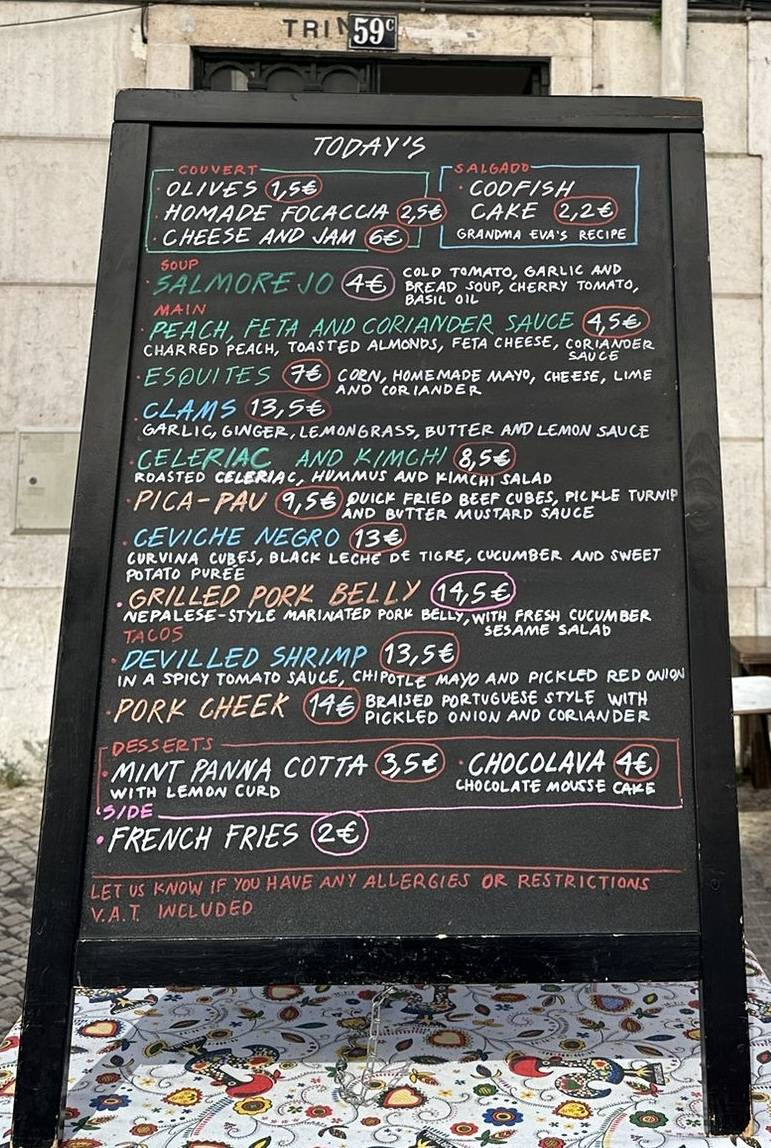 TRIN
59C
TODAY'S
COUVERT
OLIVES 1,5€
HOMADE FOCACCIA 2,5€
CHEESE AND JAM 6€
SALGADO
CODFISH
CAKE 2,2€
GRANDMA EVA'S RECIPE
SOUP
SALMOREJO 4€ COLD TOMATO, GARLIC AND
BREAD SOUP, CHERRY TOMATO,
BASIL OIL
MAIN
PEACH, FETA AND CORIANDER SAUCE 4,5€
CHARRED PEACH, TOASTED ALMONDS, FETA CHEESE, CORIANDER
SAUCE
ESQUITES 7€ CORN, HOMEMADE MAYO, CHEESE, LIME
AND CORIANDER
CLAMS 13,5€
GARLIC, GINGER, LEMONGRASS, BUTTER AND LEMON SAUCE
CELERIAC AND KIMCHI 8,5€
ROASTED CELERIAC, HUMMUS AND KIMCHI SALAD
PICA-PAU 9,5€ QUICK FRIED BEEF CUBES, PICKLE TURNIP
AND BUTTER MUSTARD SAUCE
CEVICHE NEGRO 13€
CURVINA CUBES, BLACK LECHE DE TIGRE, CUCUMBER AND SWEET
POTATO PURÉE
GRILLED PORK BELLY 14,5€
NEPALESE-STYLE MARINATED PORK BELLY, WITH FRESH CUCUMBER
SESAME SALAD
TACOS
DEVILLED SHRIMP 13,5€
IN A SPICY TOMATO SAUCE, CHIPOTLE MAYO AND PICKLED RED ONION
PORK CHEEK 14€ BRAISED PORTUGUESE STYLE WITH
PICKLED ONION AND CORIANDER
DESSERTS
MINT PANNA COTTA 3,5€
WITH LEMON CURD
CHOCOLAVA 4€
CHOCOLATE MOUSSE CAKE
SIDE
FRENCH FRIES 2€
LET US KNOW IF YOU HAVE ANY ALLERGIES OR RESTRICTIONS
V.A.T. INCLUDED